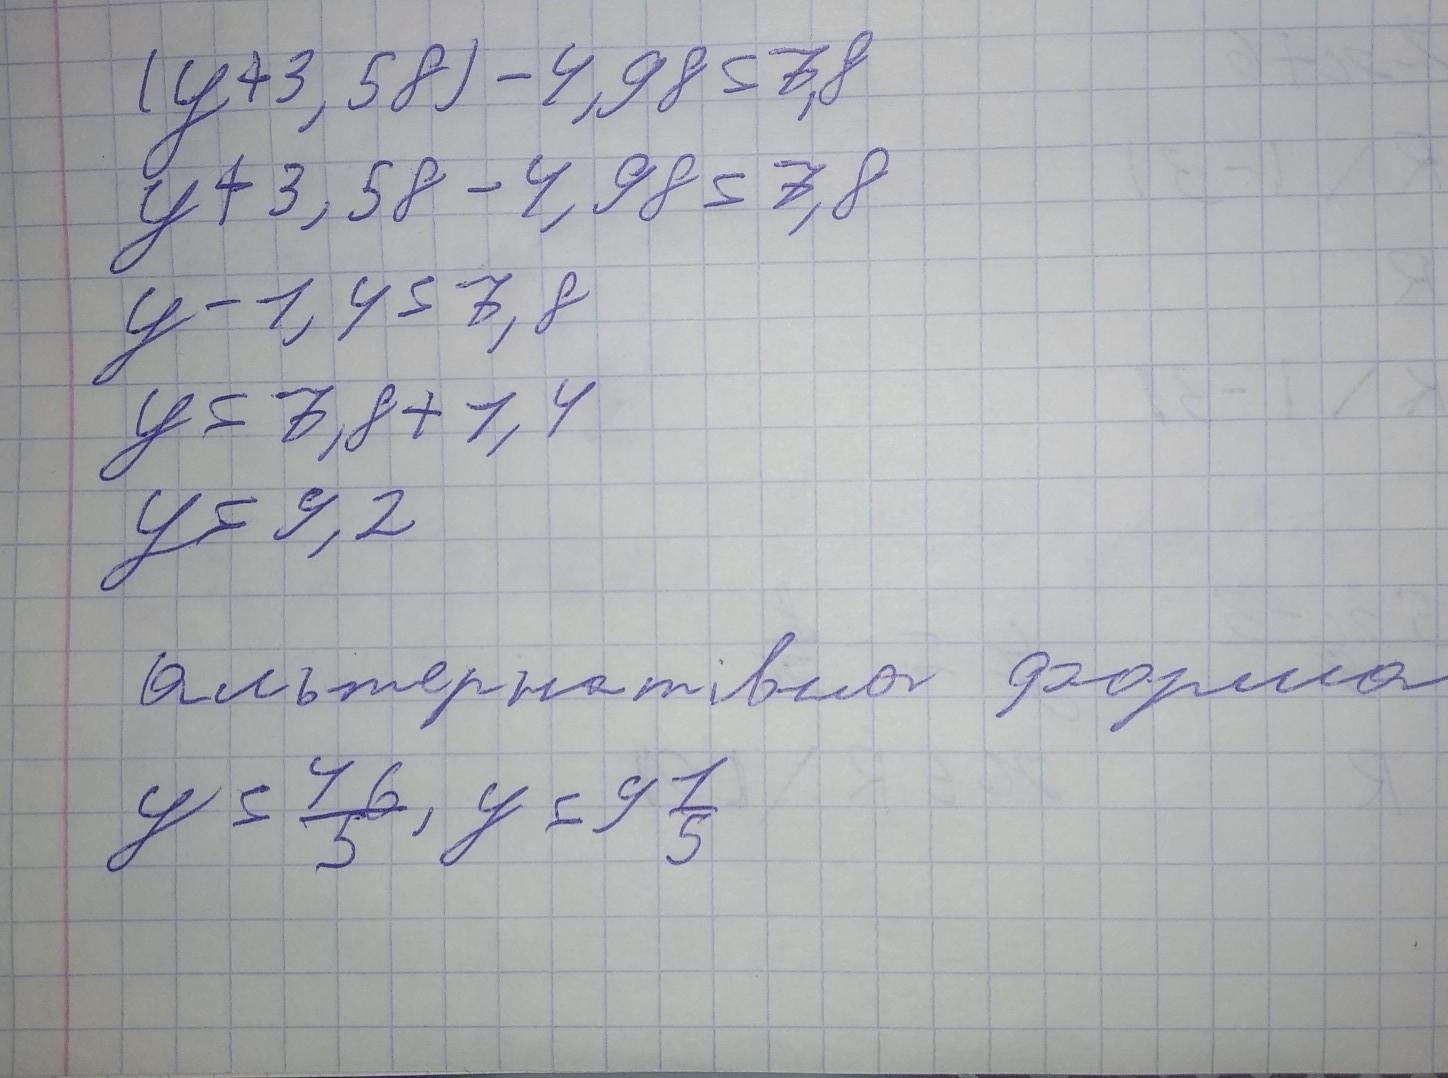 (y+3,58)-4,98=7,8
y+3,58-4,98=7,8
y-1,4=7,8
y=7,8+1,4
y=9,2
альтернативна форма
y=46/5, y=9 1/5